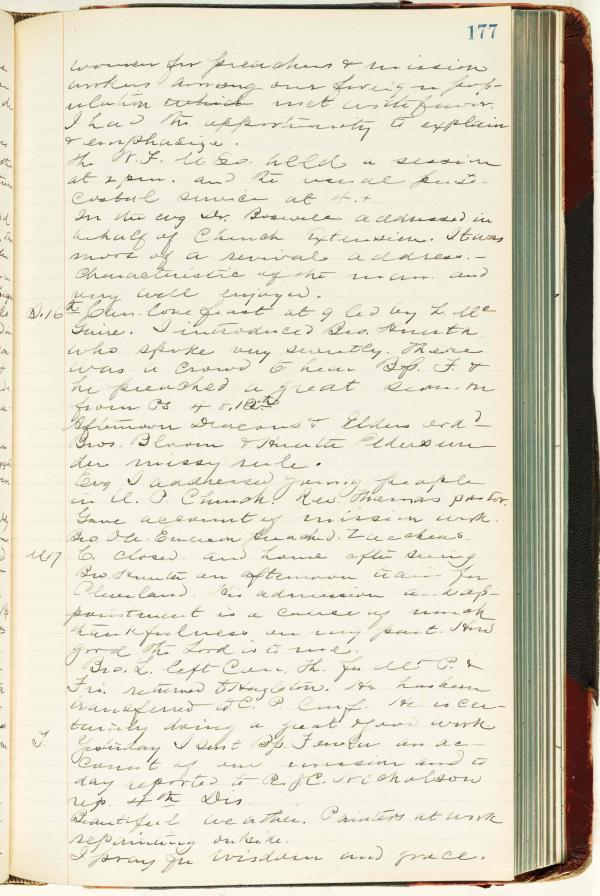 177
women for preachers & mission
workers among our foreign pop-
ulation which met with favor.
I had the opportunity to explain
& emphasize.
The W. F. M. So. held a session
at 2 p.m. and the usual pente-
costal service at 4.+.
In the evg Dr. Boswell addressed in
behalf of Church Extension. It was
more of a revival address. -
Characteristic of the man and
very well enjoyed.
S. 16th Con. love feast at 9 led by L. Mc
Guire. I introduced Bro.
who spoke very sweetly. There
was a crowd to hear Bp. F. &
he preached a great sermon
from Ps 48.12th
Afternoon Deacons & Elders ord-
Bros. Bloom & Elders un-
der missy rule.
Evg I addressed young people
in U. P. Church. Rev Thomas pastor.
Gave account of mission work.
Bro. preached. Zaccheus.
M 17 C. closed and home after seeing
Bro. on afternoon train for
Cleveland. His admission and ap-
pointment is a cause of much
thankfulness on my part. How
good the Lord is to me.
Bro. L. left Con. Th. for Mt. P. &
Fri. returned to Hazleton. He has been
transferred to C. P. Conf. He is cer-
tainly doing a great & good work
T. Yesterday I sent Bp. Fowler an ac-
count of our mission and to
day reported to R. J. C. Nicholson
rep. 4th Dis.
Beautiful weather. Painters at work
repainting outside.
I pray for wisdom and grace.